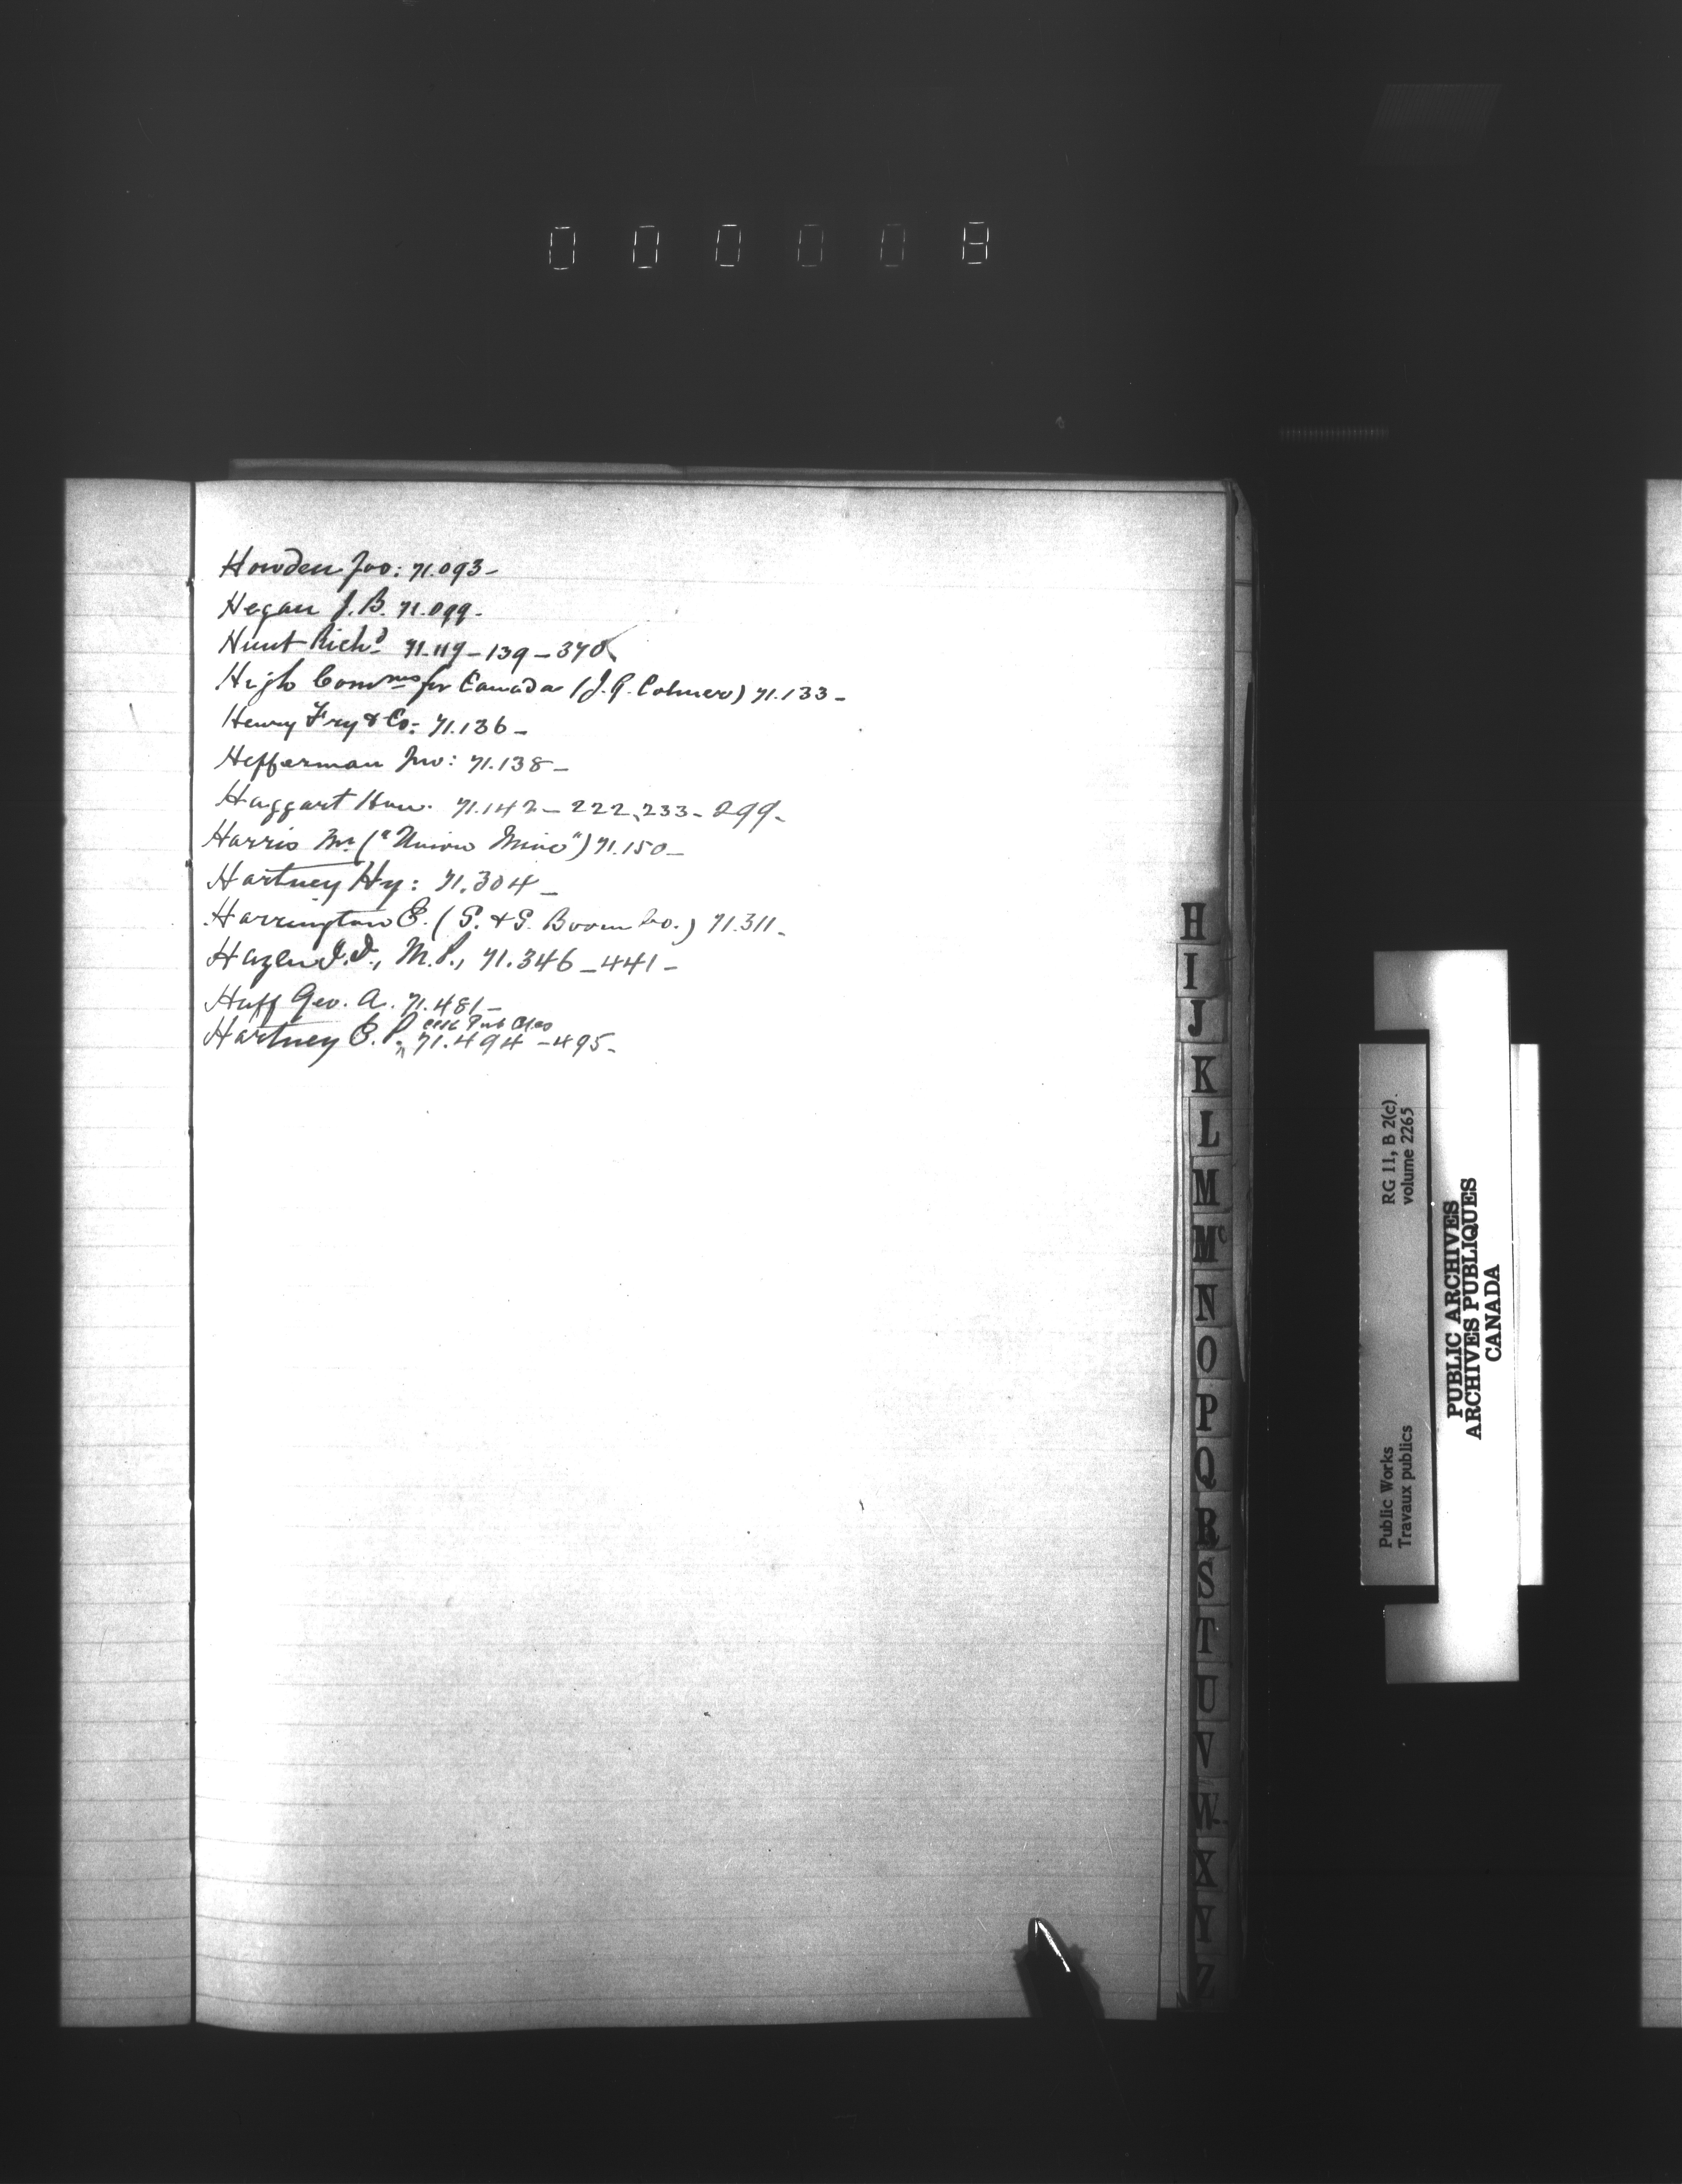 000008
Howden Jno: 71.093-
Hegan J. B. 71.099-
Hunt Richd 71.119-139-370
High Commrs for Canada (J. G. Colmer) 71.133-
Henry Fry & Co: 71.136-
Hefferman Jno: 71.138-
Haggart Hon. 71.142-222,233-299-
Harris Mr ("Union Mine") 71.150-
Hartney Hy: 71.304-
Harrington E. (S. & G. Boom Co.) 71.311-
Hazen J.D., M.P., 71.346-441-
Huff Geo. A. 71.481-
Hartney E. P. 71.494-495-
H
I
J
K
L
M
Mc
N
O
P
Q
R
S
T
U
V
W
X
Y
Z
RG 11, B 2(c).
volume 2265
Public Works
Travaux publics
PUBLIC ARCHIVES
ARCHIVES PUBLIQUES
CANADA